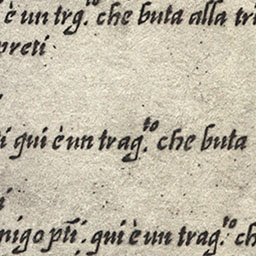 è un trag.to che buta alla tri
preti
i qui è un trag.to che buta
i
nigo pti . qui è un trag.to ch